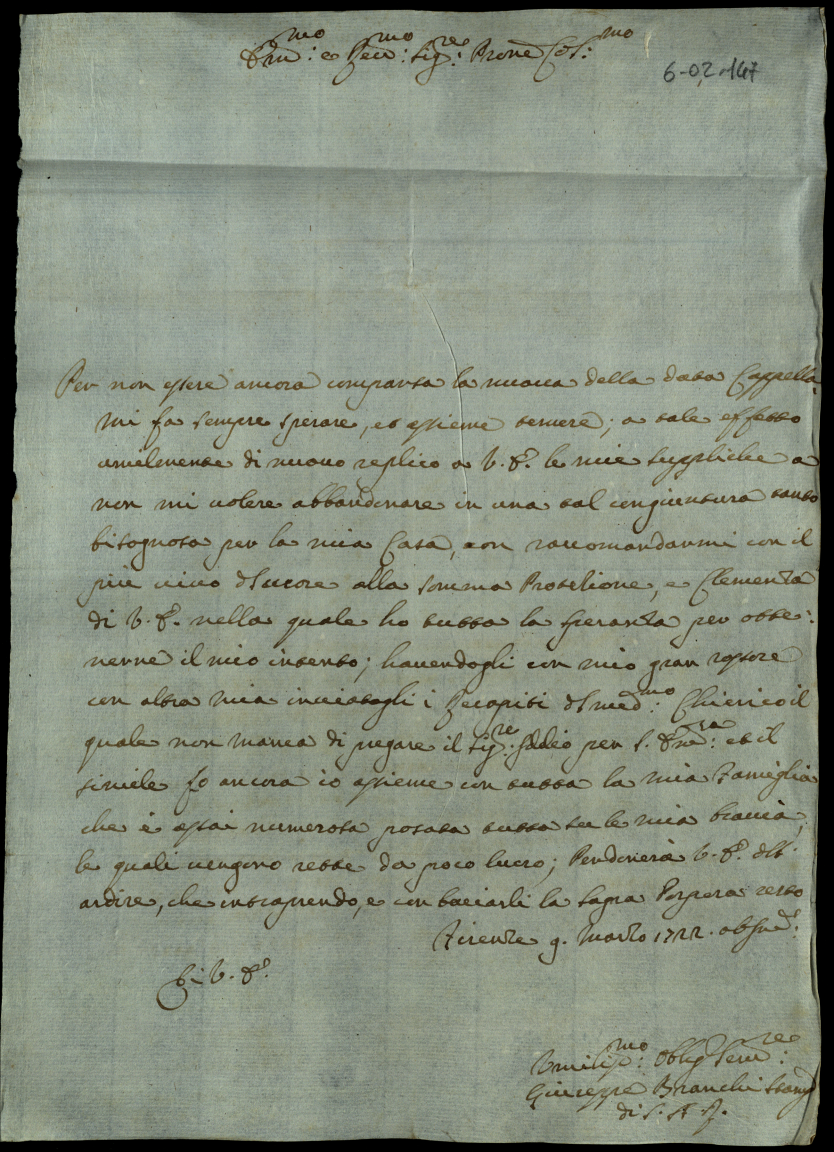 Em.mo: e Rev.mo: Sig.re: Prone Col.mo
6-02-147
Per non essere ancora comparsa la nuova della data Cappella
mi fa sempre sperare, et assieme temere; a tale effetto
umilmente di nuovo replico a V. E. le mie suppliche a
non mi volere abbandonare in una tal congiuntura tanto
bisognosa per la mia Casa, con raccomandarmi con il
più vivo del cuore alla somma Protetione, e Clemenza
di V. E. nella quale ho tutta la speranza per otte:
nerne il mio intento; havendogli con mio gran rossore
con altra mia inviatogli i Recapiti del med.mo: Chierico il
quale non manca di pregare il Sig.re: Iddio per S. Em.za: et il
simile fo ancora io assieme con tutta la mia Famiglia
che è assai numerosa posata tutta su le mia braccia,
le quali vengono rette da poco lucro; Perdonerà V. E. dell'
ardire, che intraprendo, e con baciarli la sagra Porpora resto
Firenze 9. Marzo 1722. ab Inc:
Di V. E.
Umiliss.mo: Oblig Serv.re:
Giuseppe Bianchi
di S. A. R.